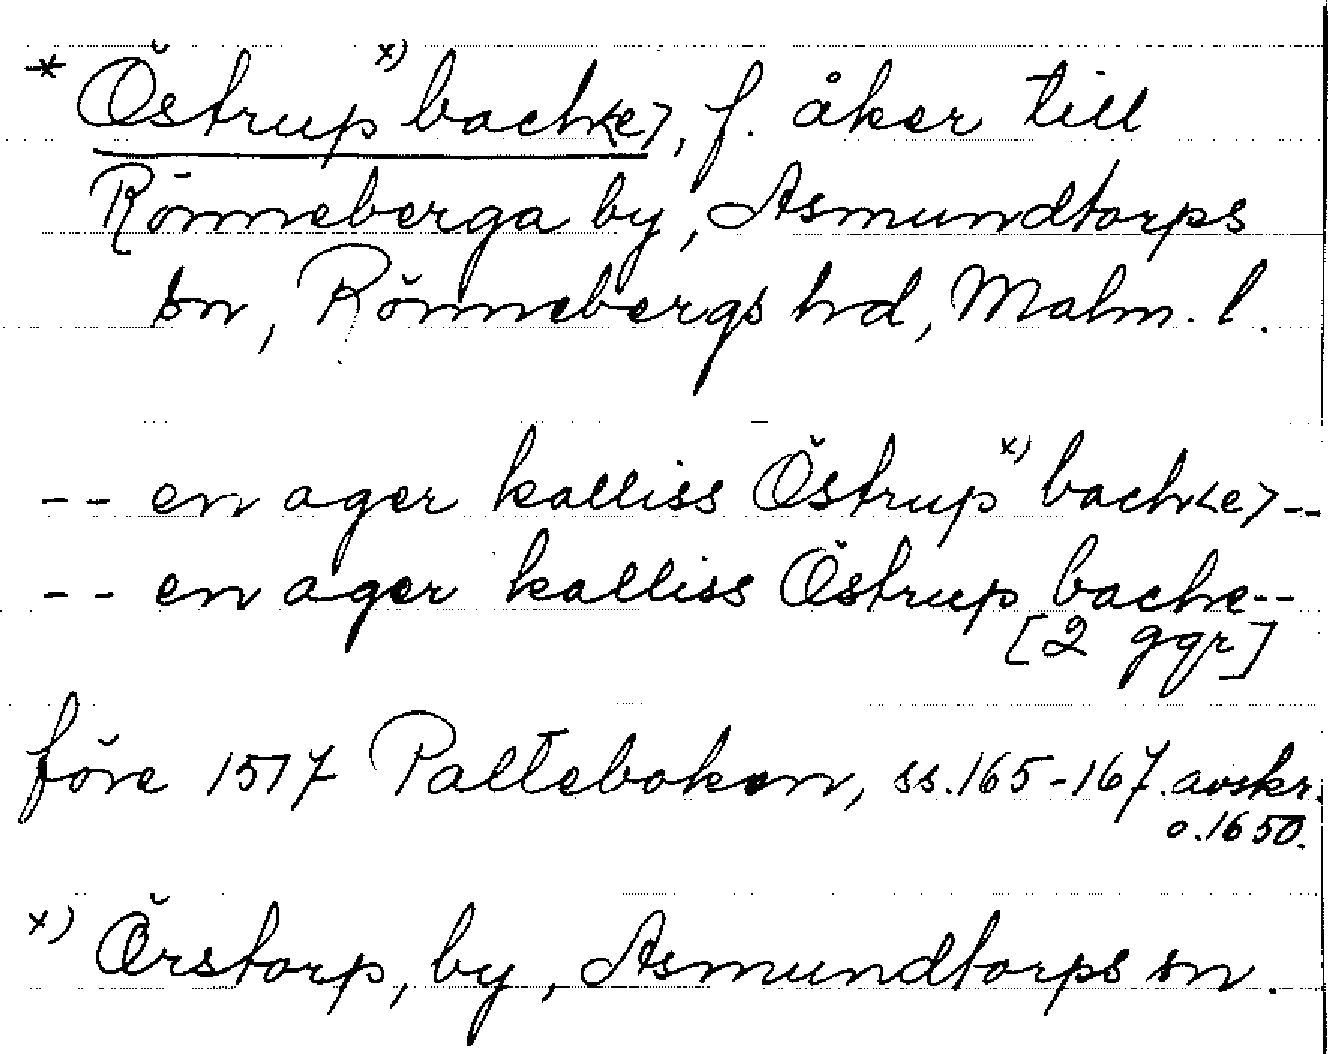 * Östrup x) backe>, f. åker till
Rönneberga by, Asmundtorps
sn, Rönnebergs hd, Malm. l.
-- en ager kalliss Östrup x) bach<e> --
-- en ager kalliss Östrup bache --
[2 ggr]
före 1517 Palteboken, ss. 165-167. avskr.
o. 1650.
x) Örstorp, by, Asmundtorps sn.